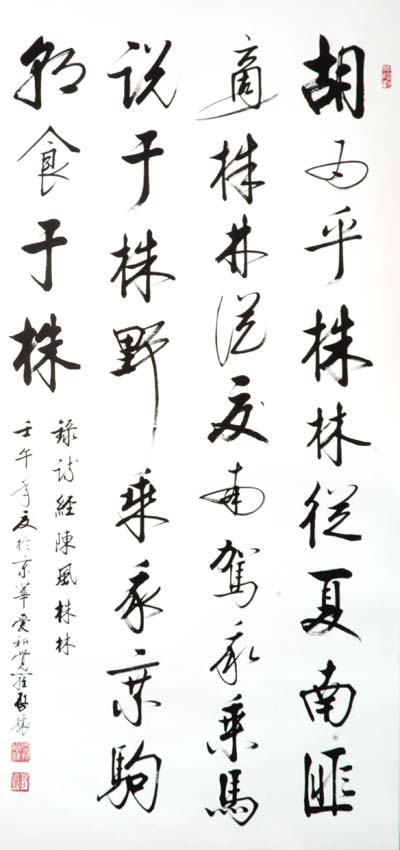 胡為乎株林從夏南匪
適株林從夏南駕我乘馬
说于株野乘我乘駒
朝食于株
錄詩經陳風株林
壬午年夏於京華愛新覺羅啟驤